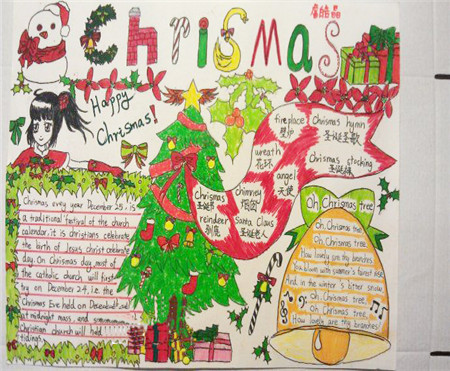 Chrismas
Happy
Chrismas!
fireplace
壁炉
Chrismas hymn
圣诞圣歌
wreath
花环
Chrismas stocking
圣诞袜
angel
天使
Chrismas
圣诞节
chimney
烟囱
reindeer
别鹿
Santa Claus
圣诞老人
Chrismas evrry year December 25, is
a traditional festival of the church
calendar, it is christians celebrate
the birth of Jesus christ celebrate
day. On Chrismas day, most of
the catholic church will first
try on December 24, i.e. the
Chrismas Eve held on
at midnight mass, and
Christian church will held
tidings.
Oh, Chrismas tree
Oh, Chrismas tree
Oh, Chrismas tree,
How lovely are thy branches
And in the winter's bitter snow
Oh, Chrismas tree,
Oh, Chrismas tree
How lovely are thy branches